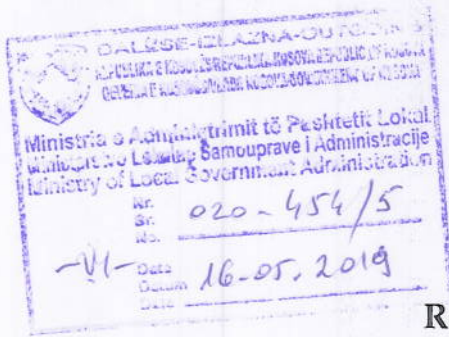 DALËSE-IZLAZNA-OUTGOING
REPUBLIKA E KOSOVËS REPUBLIKA KOSOVA REPUBLIC OF KOSOVA
Ministria e Administrimit të Pushtetit Lokal
Ministarstvo Lokalne Samouprave i Administracije
Ministry of Local Government Administration
Nr.
Br. 020-454/5
No.
-VI- Data
Datum 16-05.2019
Date
R